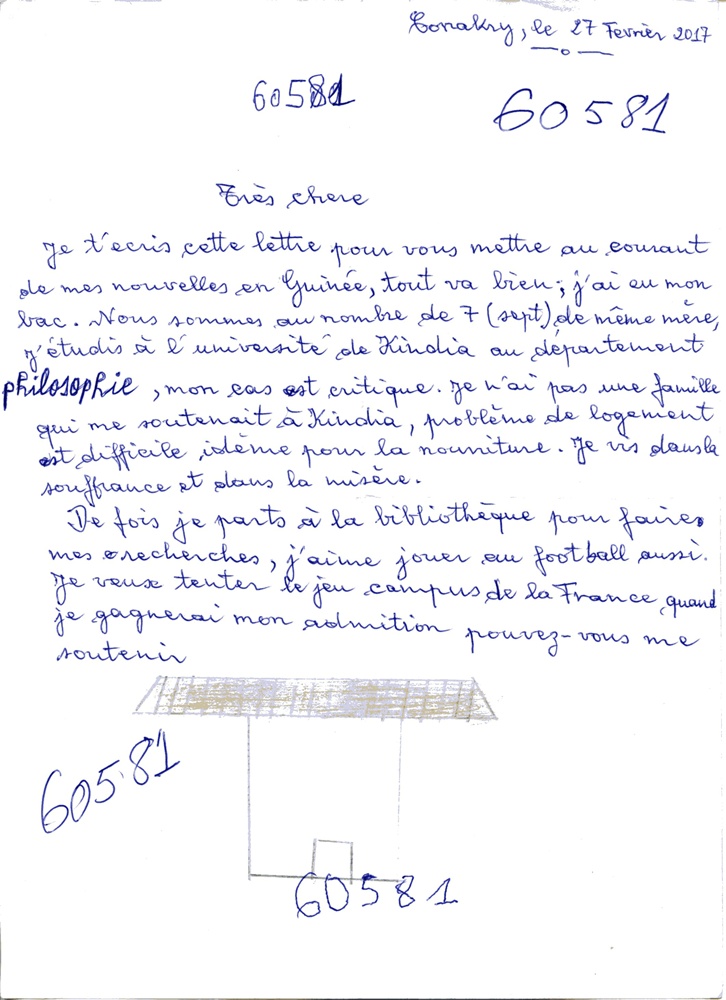 Conakry, le 27 Fevrier 2017
60581
60581
Très chere
Je t'ecris cette lettre pour vous mettre au courant
de mes nouvelles en Guinée, tout va bien; j'ai eu mon
bac. Nous sommes au nombre de 7 (sept) de même mère,
j'étudis à l'université de Kindia au département
philosophie, mon cas est critique. Je n'ai pas une famille
qui me soutenait à Kindia, problème de logement
est difficile idème pour la nourriture. Je vis dans la
souffrance et dans la misère.
De fois je parts à la bibliothèque pour faires
mes recherches, j'aime jouer au football aussi.
Je veux tenter le jeu campus de la France, quand
je gagnerai mon admition pouvez-vous me
soutenir
60581
60581